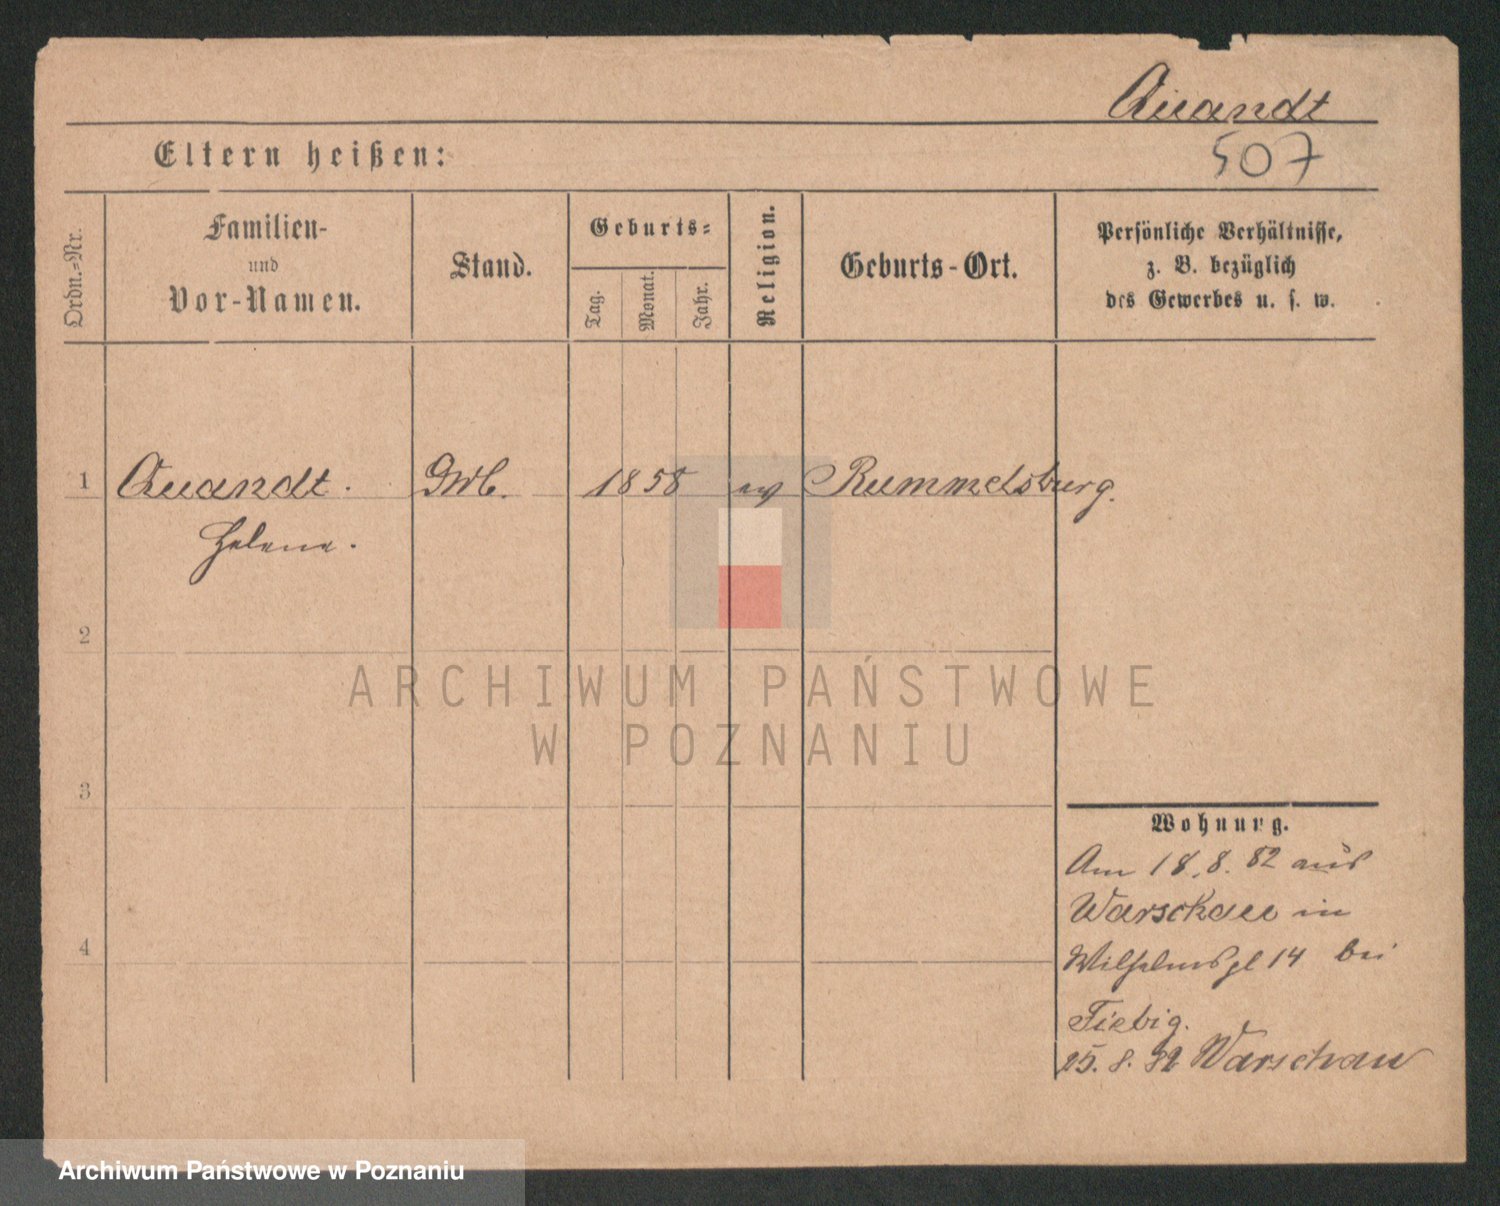 Quandt
507
Eltern heißen:
Ordn.-Nr.
Familien-
und
Vor-Namen.
Stand.
Geburts-
Tag.
Monat.
Jahr.
Religion.
Geburts-Ort.
Persönliche Verhältnisse,
z. B. bezüglich
des Gewerbes u. s. w.
1 Quandt. 1858 ev Rummelsburg.
Helene.
2
3
4
ARCHIWUM PAŃSTWOWE
W POZNANIU
Wohnung.
Am 18.8.82 aus
Warschau in
Wilhelmspl 14 bei
Fiebig.
25.8.82 Warschau
Archiwum Państwowe w Poznaniu